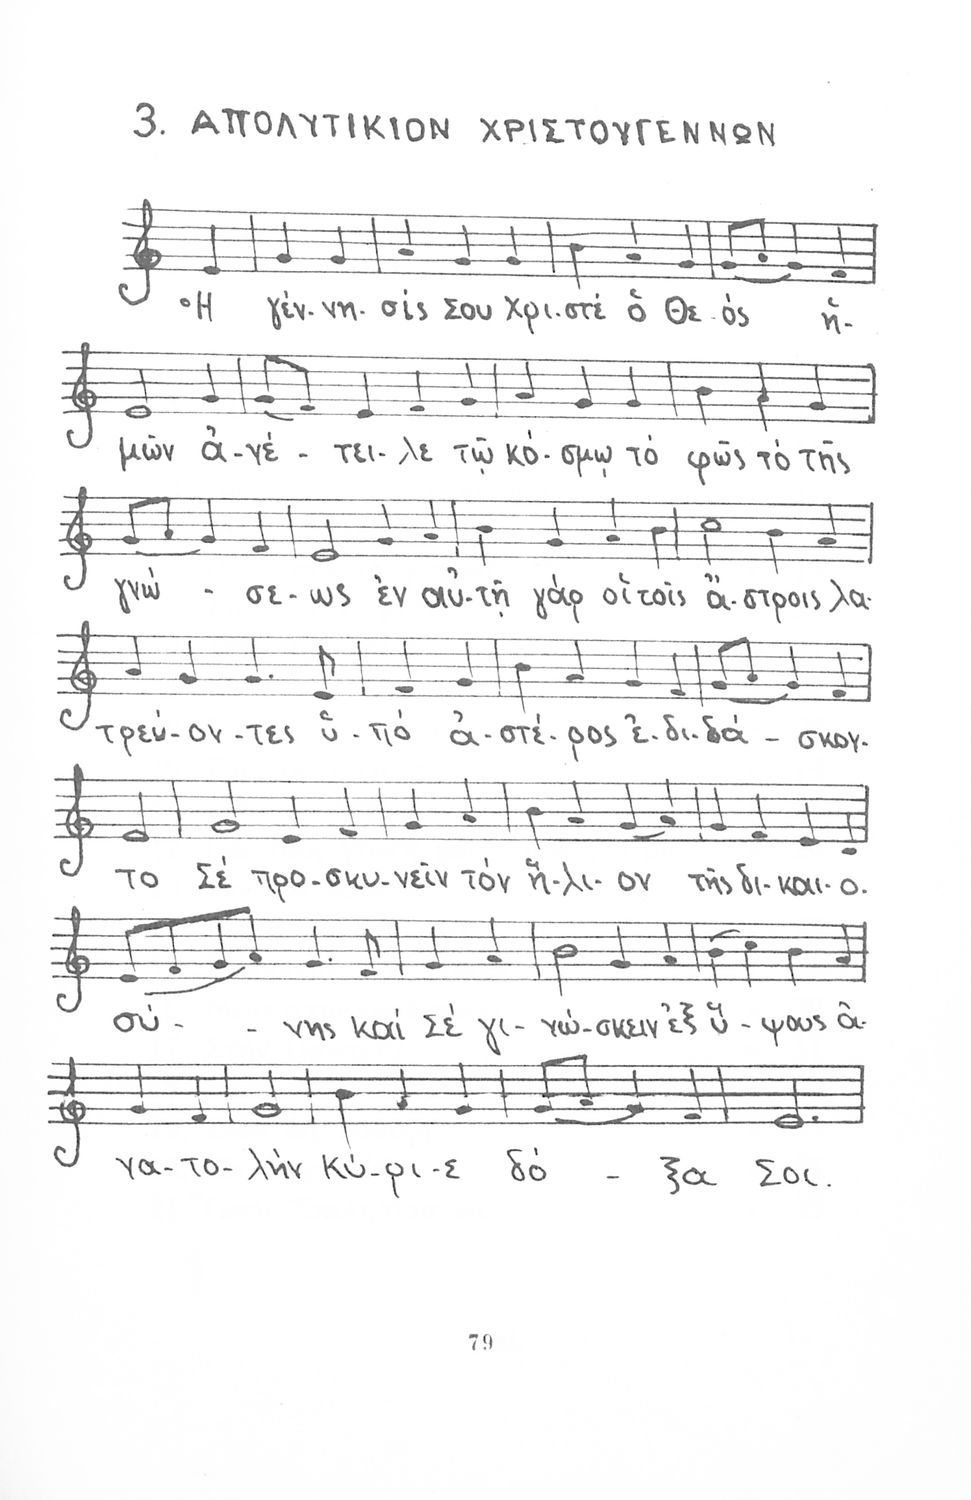 3. ΑΠΟΛΥΤΙΚΙΟΝ ΧΡΙΣΤΟΥΓΕΝΝΩΝ
Ἡ γέν-νη-σίς Σου Χρι-στέ ὁ Θε-ός ἡ-
μῶν ἀ-νέ-τει-λε τῷ κό-σμῳ τό φῶς τό τῆς
γνώ-σε-ως ἐν αὐ-τῇ γάρ οἱ τοῖς ἄ-στροις λα-
τρεύ-ον-τες ὑ-πό ἀ-στέ-ρος ἐ-δι-δά-σκον-
το Σέ προ-σκυ-νεῖν τόν ἥ-λι-ον τῆς δι-και-ο-
σύ--νης καί Σέ γι-νώ-σκειν ἐξ ὕ-ψους ἀ-
να-το-λήν Κύ-ρι-ε δό-ξα Σοι.
79